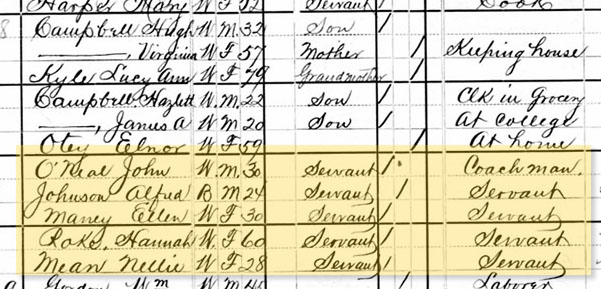 Harper Mary W F 52 Servant / Cook
8 Campbell Hugh W M 32 Son /
———, Virginia W F 57 Mother / Keeping house
Kyle Lucy Ann W F 79 Grandmother /
Campbell Hazlett W M 22 Son / Clk in Grocery
———, James A W M 20 Son / At College
Otey Elnor W F 59 / At home
O'Neal John W. M. 30 Servant / Coachman.
Johnson Alfred B M 24 Servant / Servant
Maney Ellen W F 30 Servant / Servant
Roks. Hannah W. F 60 Servant / Servant
Mean Nellie W F 28 Servant / Servant
Gordon Wm W M 45 Laborer